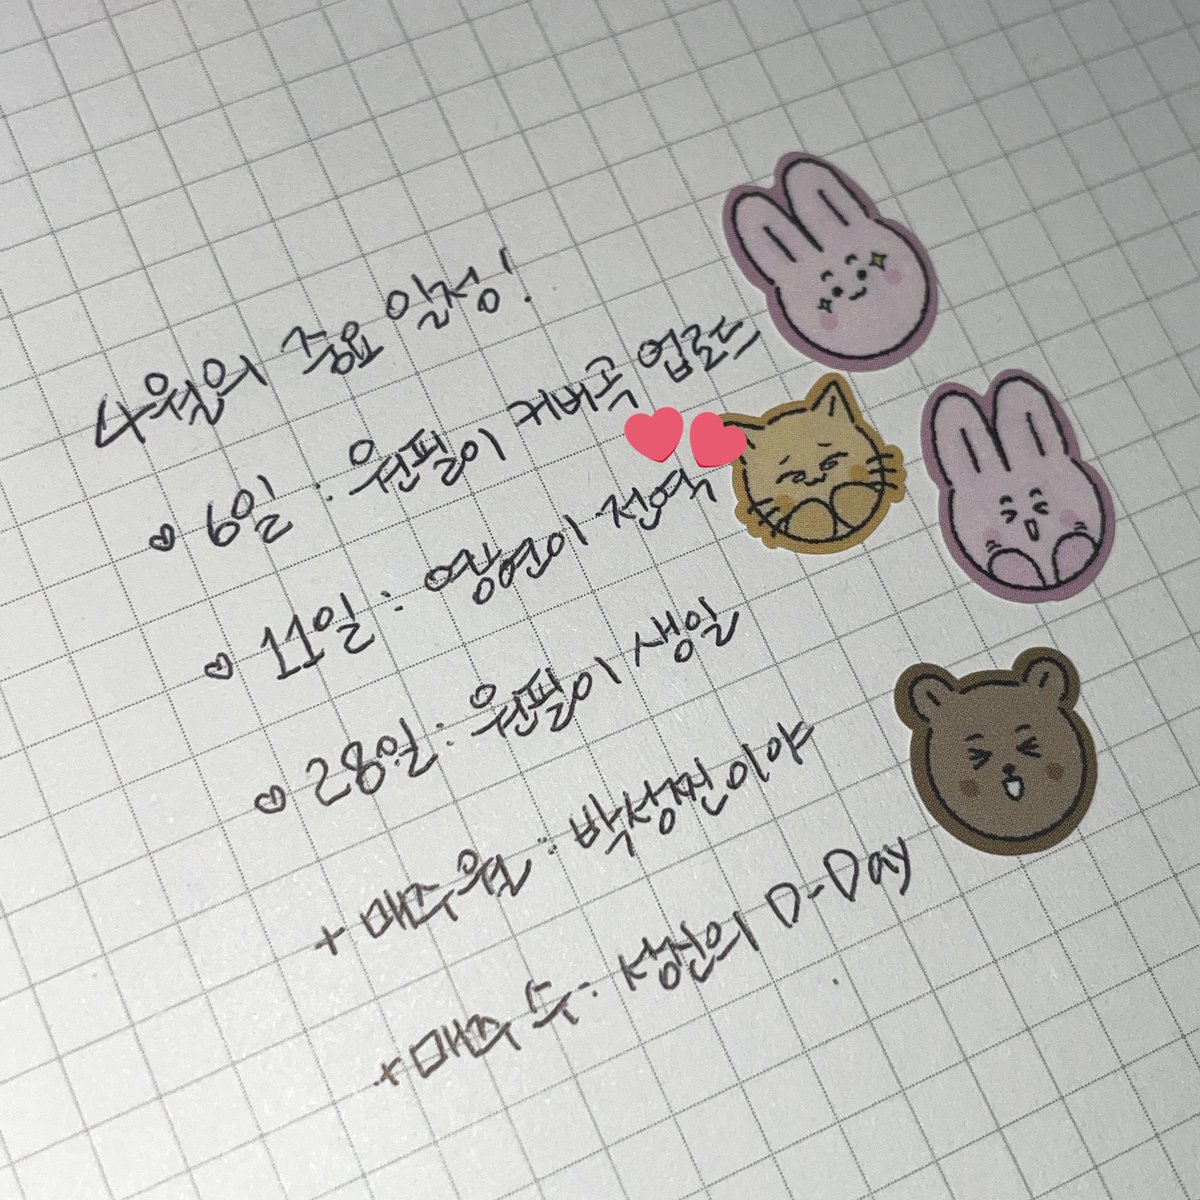 4월의 중요 일정!
♡ 6일 : 원필이 커버곡 업로드
♡ 11일 : 영현이 전역
♡ 28일 : 원필이 생일
+ 매주 월 : 박성찐이야
+ 매주 수 : 성진의 D-Day